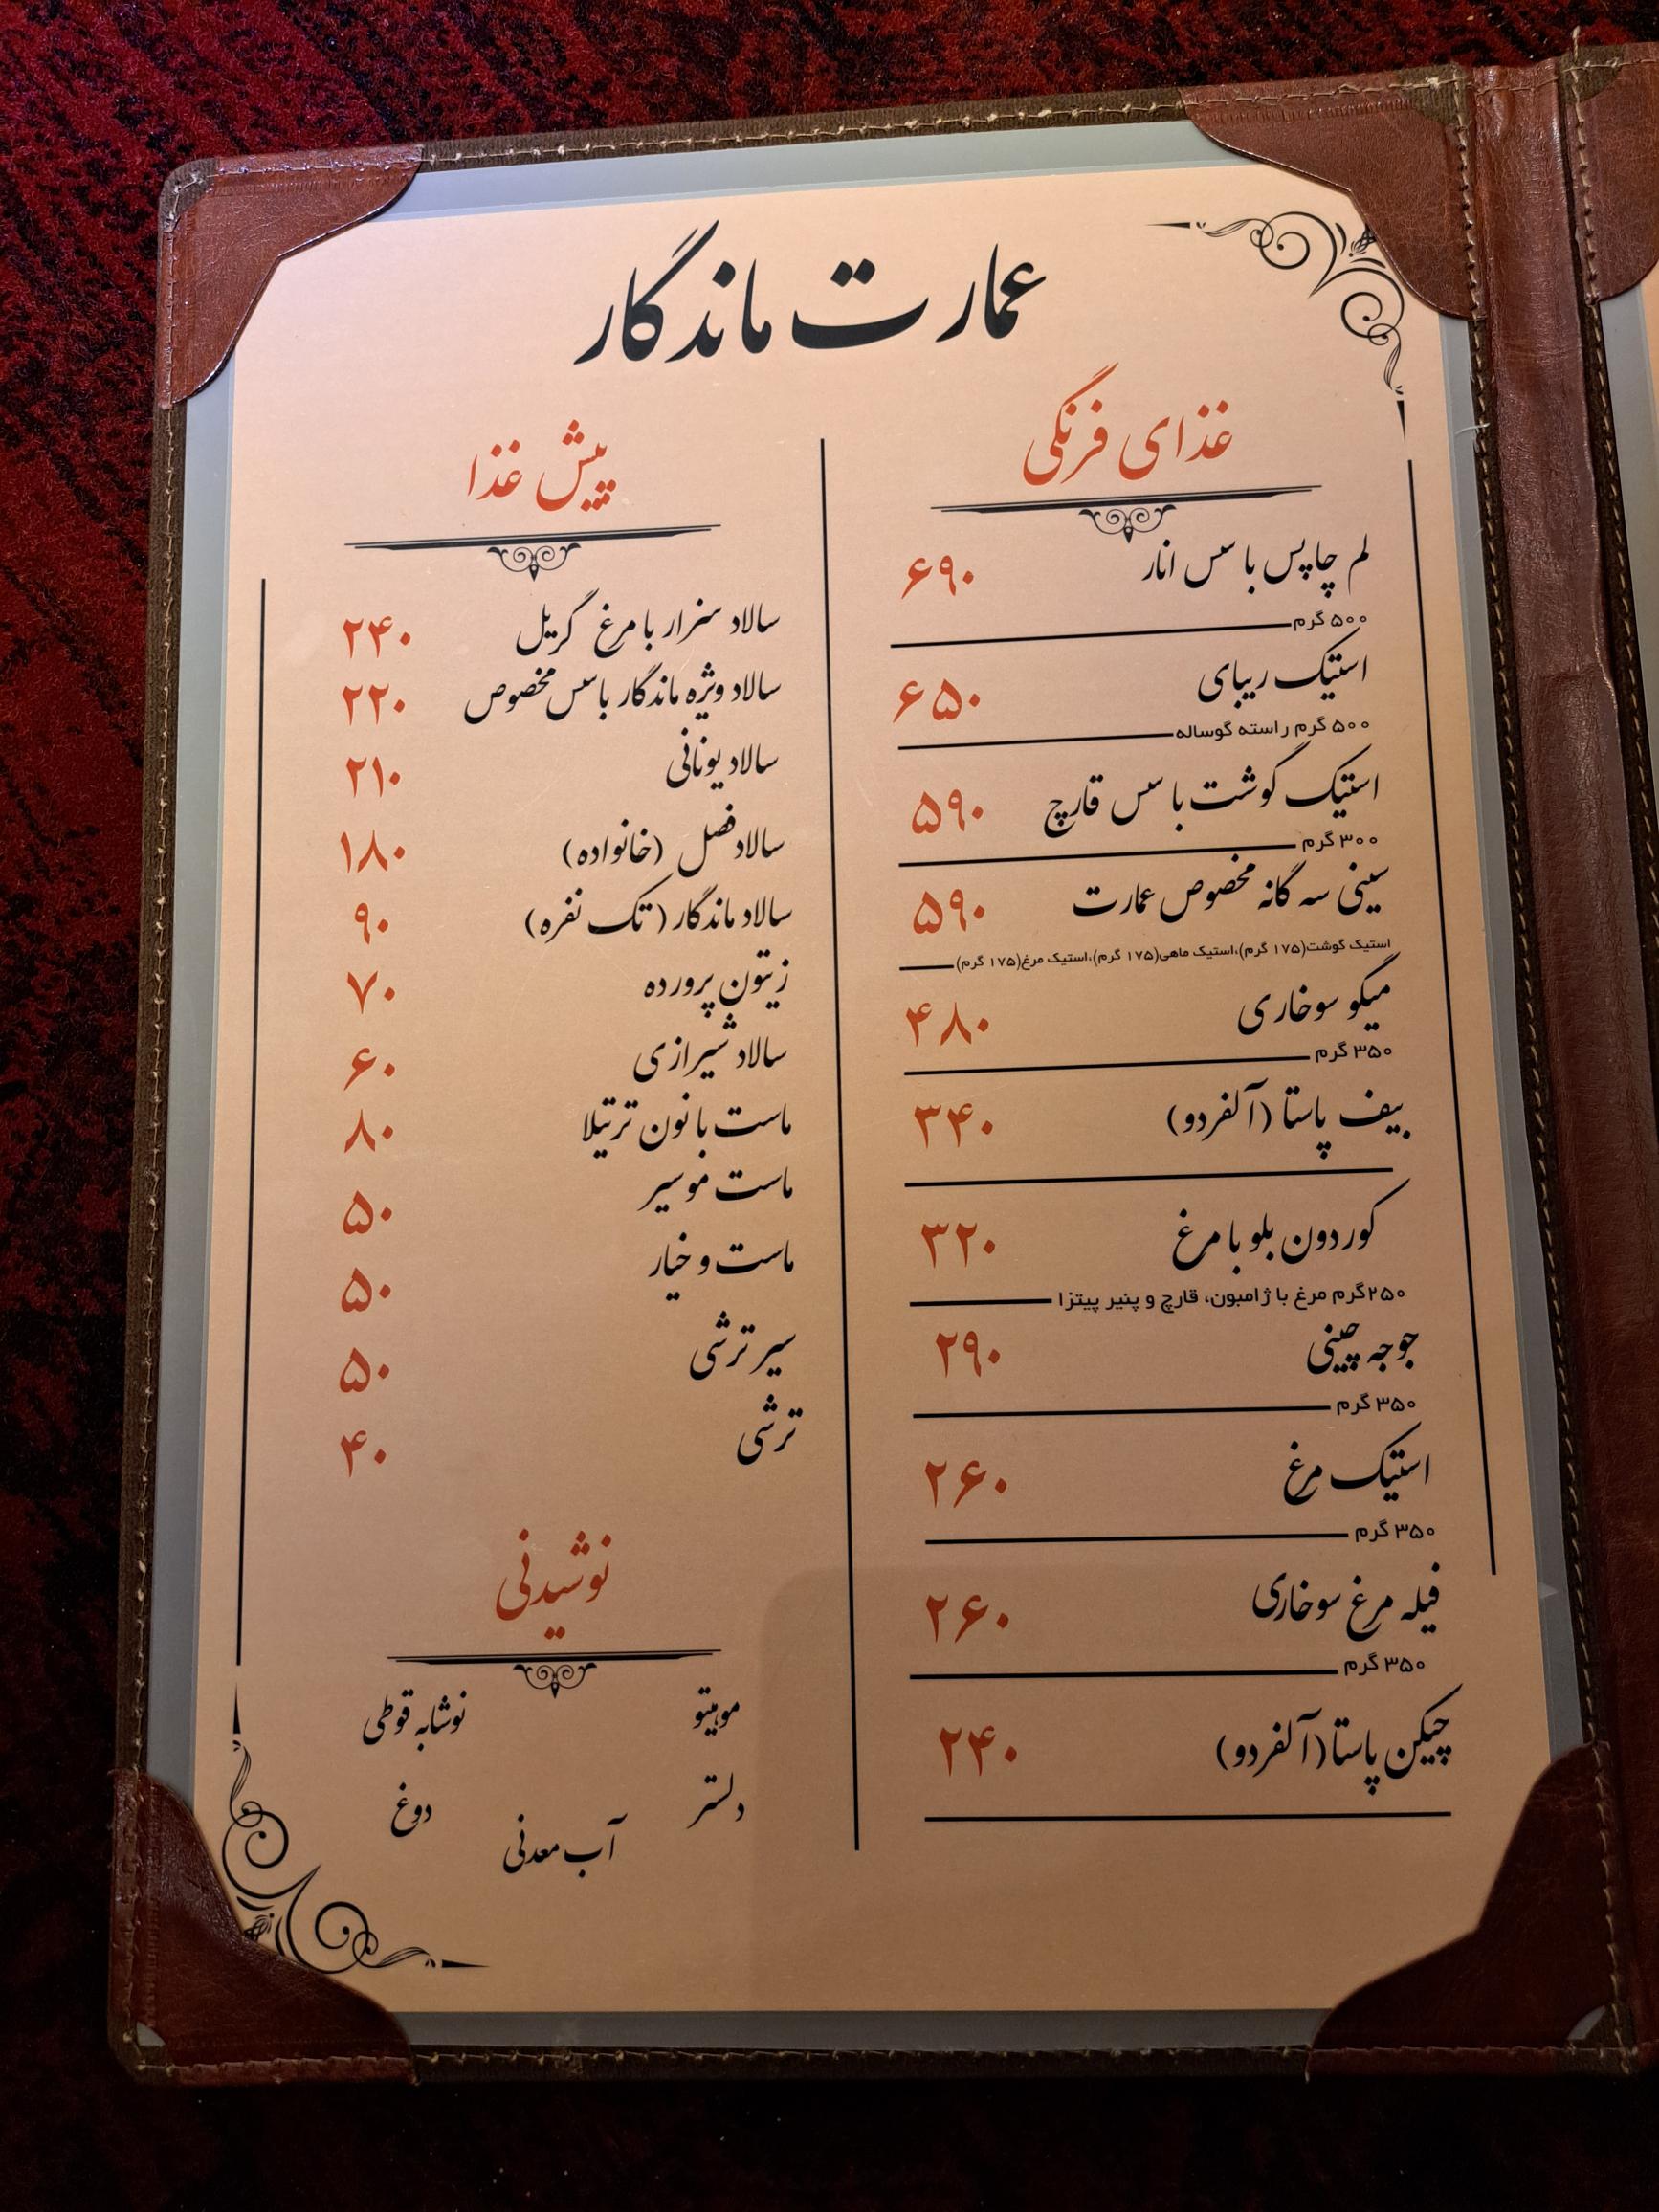 عمارت ماندگار
غذای فرنگی
لم چاپس با سس انار ۶۹۰
۵۰۰ گرم
استیک ریبای ۶۵۰
۵۰۰ گرم راسته گوساله
استیک گوشت با سس قارچ ۵۹۰
۳۰۰ گرم
سینی سه گانه مخصوص عمارت ۵۹۰
استیک گوشت(۱۷۵ گرم)،استیک ماهی(۱۷۵ گرم)،استیک مرغ(۱۷۵ گرم)
میگو سوخاری ۴۸۰
۳۵۰ گرم
بیف پاستا (آلفردو) ۳۴۰
کوردون بلو با مرغ ۳۲۰
۲۵۰گرم مرغ با ژامبون، قارچ و پنیر پیتزا
جوجه چینی ۲۹۰
۳۵۰ گرم
استیک مرغ ۲۶۰
۳۵۰ گرم
فیله مرغ سوخاری ۲۶۰
۳۵۰ گرم
چیکن پاستا(آلفردو) ۲۴۰
پیش غذا
سالاد سزار با مرغ گریل ۲۴۰
سالاد ویژه ماندگار با سس مخصوص ۲۲۰
سالاد یونانی ۲۱۰
سالاد فصل (خانواده) ۱۸۰
سالاد ماندگار (تک نفره) ۹۰
زیتون پرورده ۷۰
سالاد شیرازی ۶۰
ماست با نون ترتیلا ۸۰
ماست موسیر ۵۰
ماست و خیار ۵۰
سیر ترشی ۵۰
ترشی ۴۰
نوشیدنی
موهیتو نوشابه قوطی
دلستر دوغ
آب معدنی